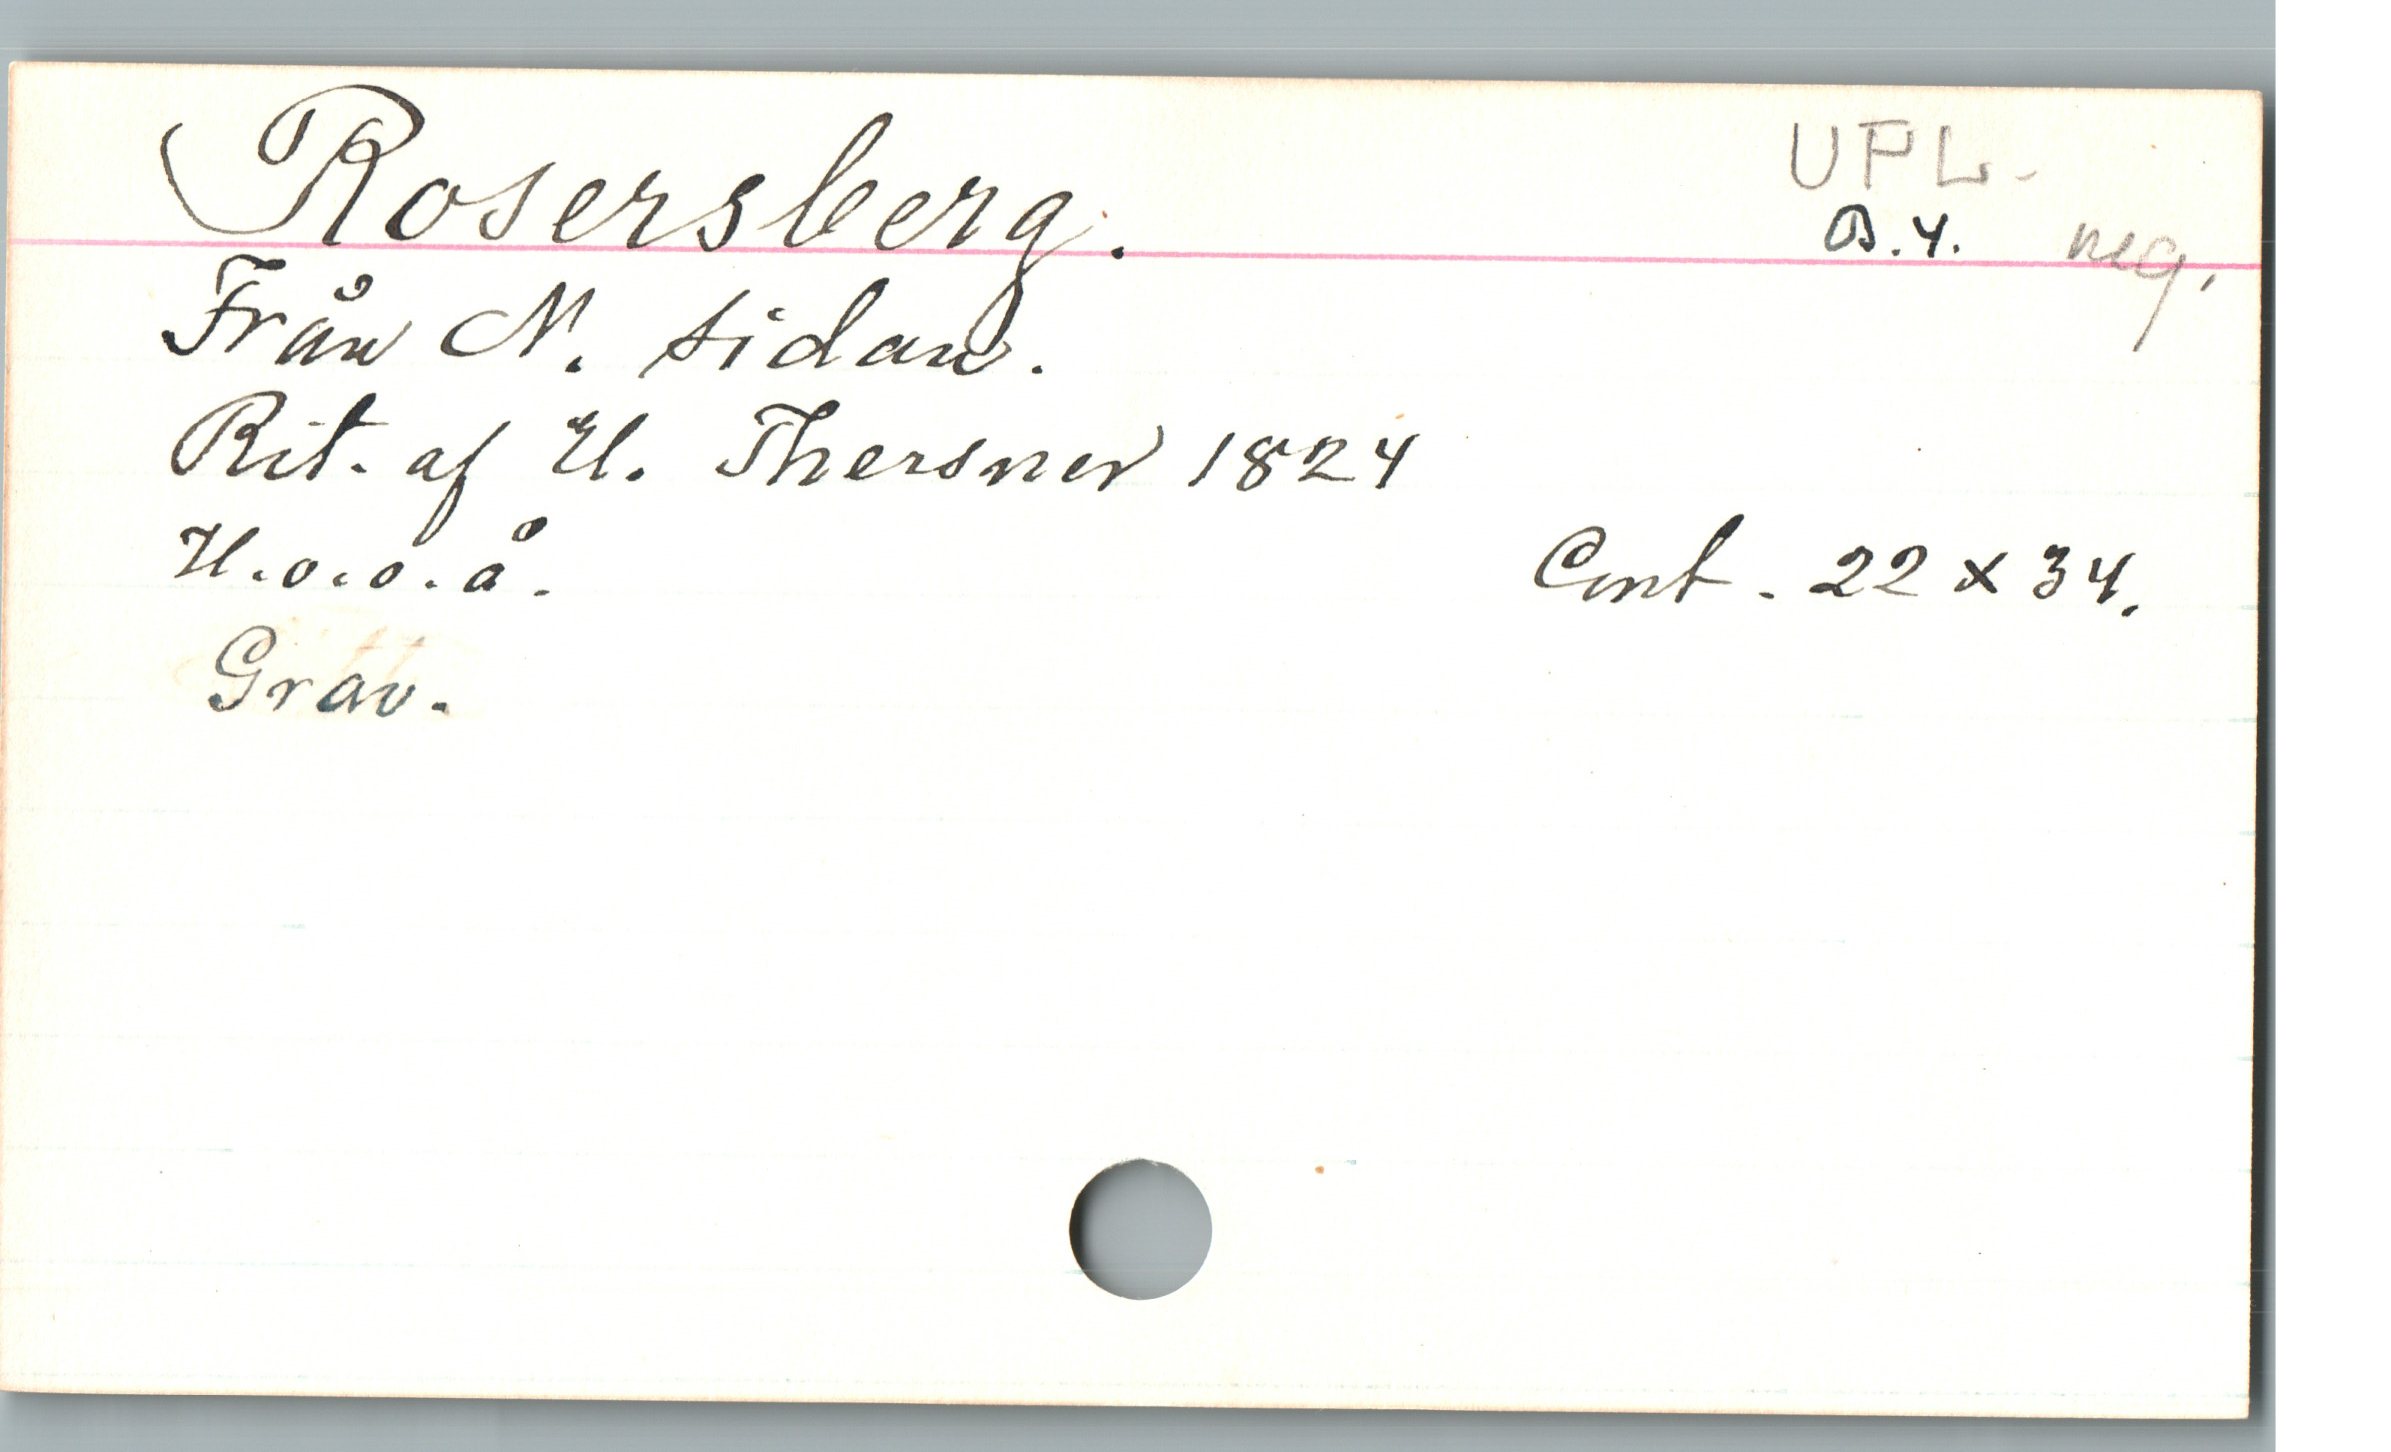 Rosersberg.
UPL.
B. 4. neg.
Från N. sidan.
Rit. af U. Thersner 1824
U. o. o. å. Cont. 22 x 34.
Grav.